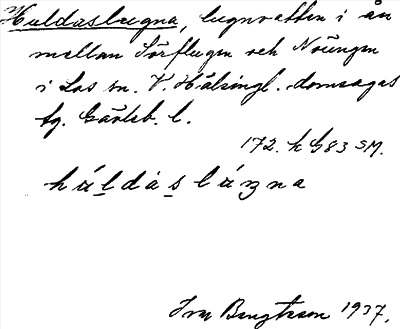 Huldaslugna, lugnvatten i ån
mellan Sörflugen och Noüngen
i Los sn. V. Hälsingl. domsagas
tg. Gävleb. l.
172. h G83 SM.
h ú l d à s l ú z n a
Bengtsson 1937.